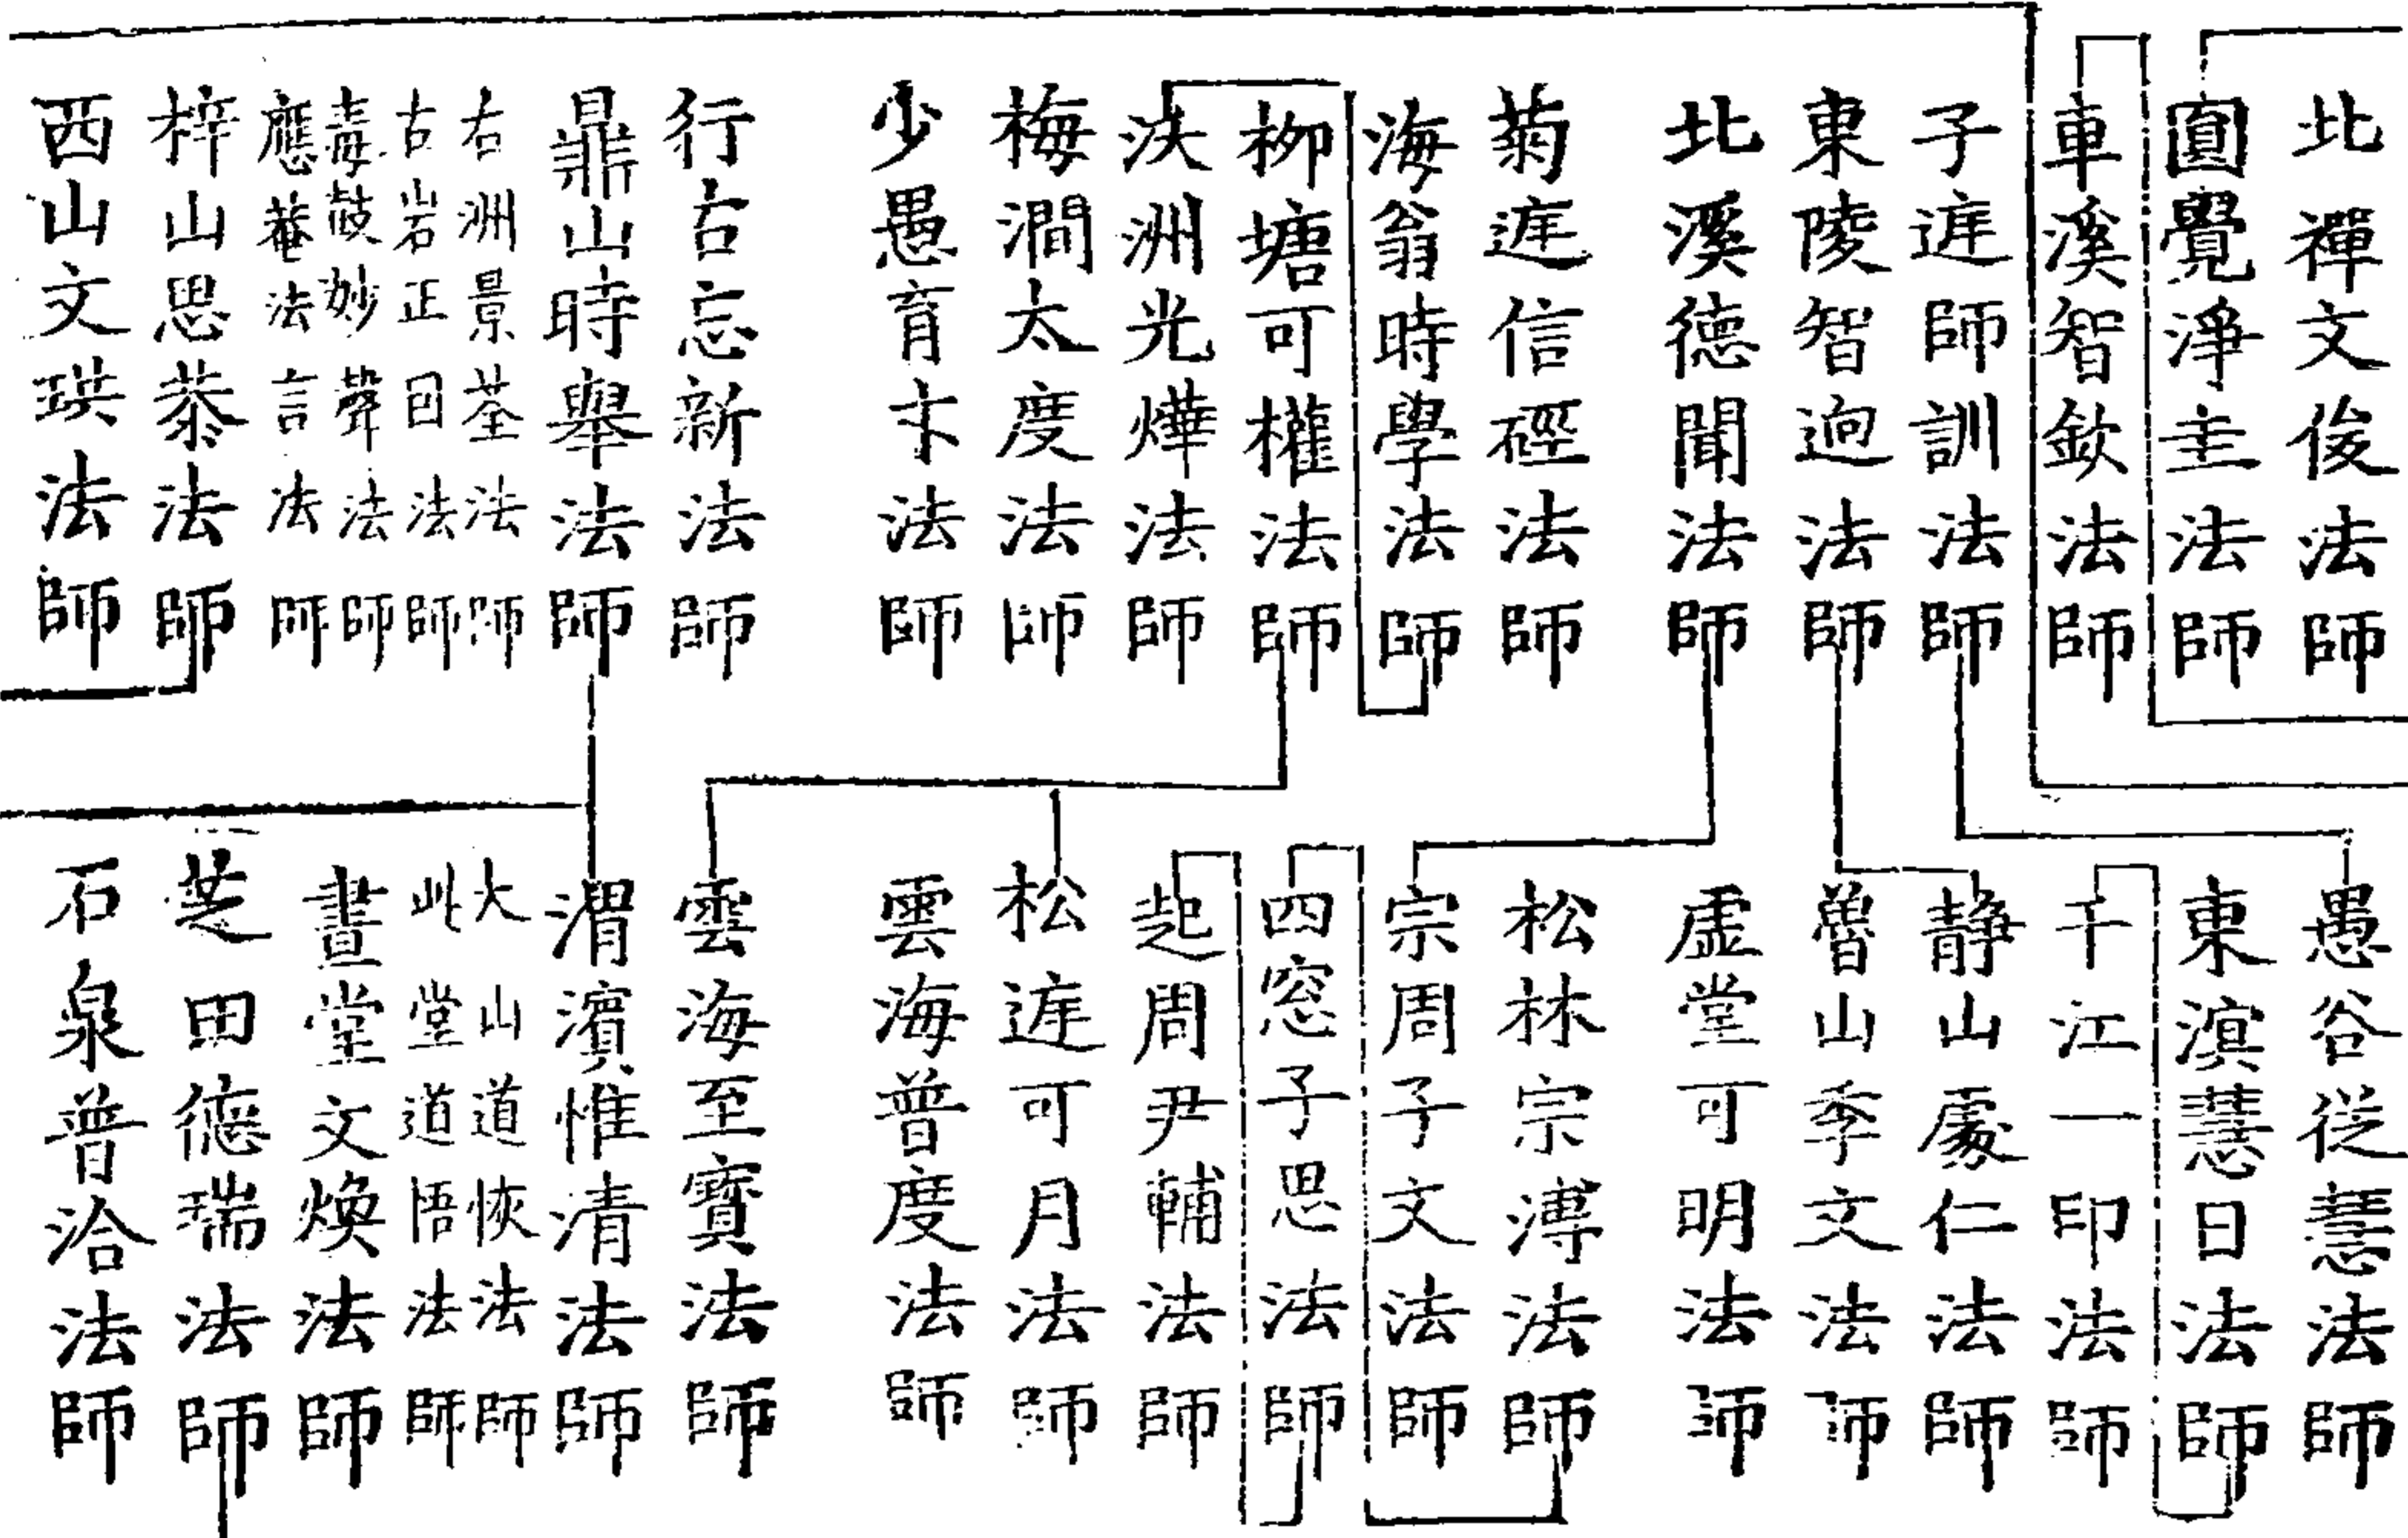 北禪文俊法師
圓覺淨圭法師
車溪智欽法師
子𨓍師訓法師
東陵智迥法師
北溪德聞法師
菊𨓍信硜法師
海翁時學法師
柳塘可權法師
洪洲光燁法師
梅澗太度法師
少愚育卞法師
行古忘新法師
鼎山時舉法師
右洲景荃法師
古岩正因法師
毒鼓妙聲法師
應菴法言法師
梓山思恭法師
西山文珙法師
愚谷從慧法師
東溟慧日法師
千江一印法師
靜山處仁法師
魯山季文法師
虛堂可明法師
松林宗溥法師
宗周子文法師
四窓子思法師
起周尹輔法師
松𨓍可月法師
雲海普度法師
雲海至寶法師
渭濱惟清法師
大山道恢法師
此堂道悟法師
晝堂文煥法師
芝田德瑞法師
石泉普洽法師